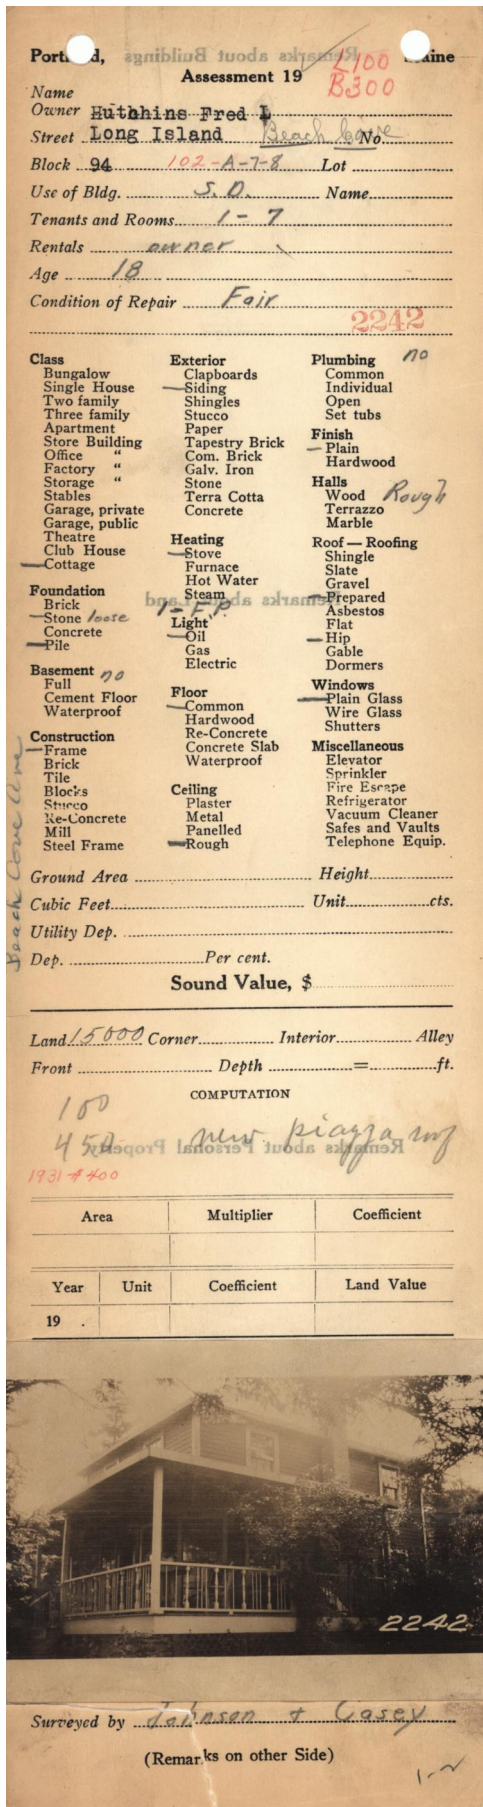 Portland, Maine
L100
B300
Assessment 19
Name
Owner Hutchins Fred L
Street Long Island Beach Cove No.
Block 94 102-A-7-8 Lot
Use of Bldg. S.D. Name
Tenants and Rooms 1-7
Rentals owner
Age 18
Condition of Repair Fair
2242
Class
Bungalow
Single House
Two family
Three family
Apartment
Store Building
Office "
Factory "
Storage "
Stables
Garage, private
Garage, public
Theatre
Club House
Cottage
Foundation
Brick
Stone loose
Concrete
Pile
Basement no
Full
Cement Floor
Waterproof
Construction
Frame
Brick
Tile
Blocks
Stucco
Re-Concrete
Mill
Steel Frame
Exterior
Clapboards
Siding
Shingles
Stucco
Paper
Tapestry Brick
Com. Brick
Galv. Iron
Stone
Terra Cotta
Concrete
Heating
Stove
Furnace
Hot Water
Steam
1-F.P.
Light
Oil
Gas
Electric
Floor
Common
Hardwood
Re-Concrete
Concrete Slab
Waterproof
Ceiling
Plaster
Metal
Panelled
Rough
Plumbing no
Common
Individual
Open
Set tubs
Finish
Plain
Hardwood
Halls
Wood Rough
Terrazzo
Marble
Roof—Roofing
Shingle
Slate
Gravel
Prepared
Asbestos
Flat
Hip
Gable
Dormers
Windows
Plain Glass
Wire Glass
Shutters
Miscellaneous
Elevator
Sprinkler
Fire Escape
Refrigerator
Vacuum Cleaner
Safes and Vaults
Telephone Equip.
Beach Cove Ave
Ground Area Height
Cubic Feet Unit cts.
Utility Dep.
Dep. Per cent.
Sound Value, $
Land 15000 Corner Interior Alley
Front Depth = ft.
COMPUTATION
100
450 new piazza roof
1931-$400
Area Multiplier Coefficient
Year Unit Coefficient Land Value
19 .
2242
Surveyed by Johnson + Casey
(Remarks on other Side)